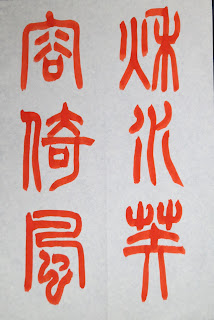 秋水芙
容倚風